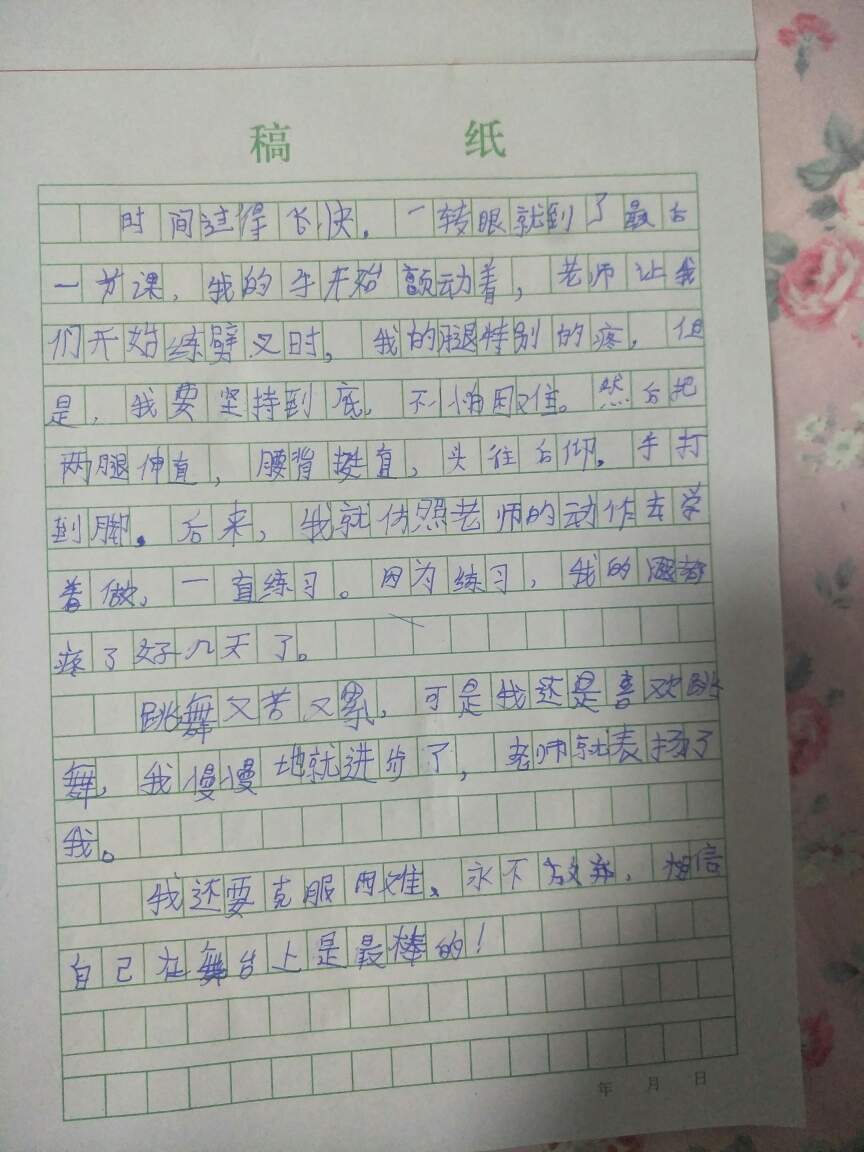 稿 纸
时间过得飞快，一转眼就到了最后
一节课，我的手开始颤动着，老师让我
们开始练劈叉时，我的腿特别的疼，但
是，我要坚持到底，不怕困难。然后把
两腿伸直，腰背挺直，头往后仰，手打
到脚。后来，我就仿照老师的动作去学
着做，一直练习。因为练习，我的腿都
疼了好几天了。
跳舞又苦又累，可是我还是喜欢跳
舞，我慢慢地就进步了，老师就表扬了
我。
我还要克服困难、永不放弃，相信
自己在舞台上是最棒的！
年 月 日